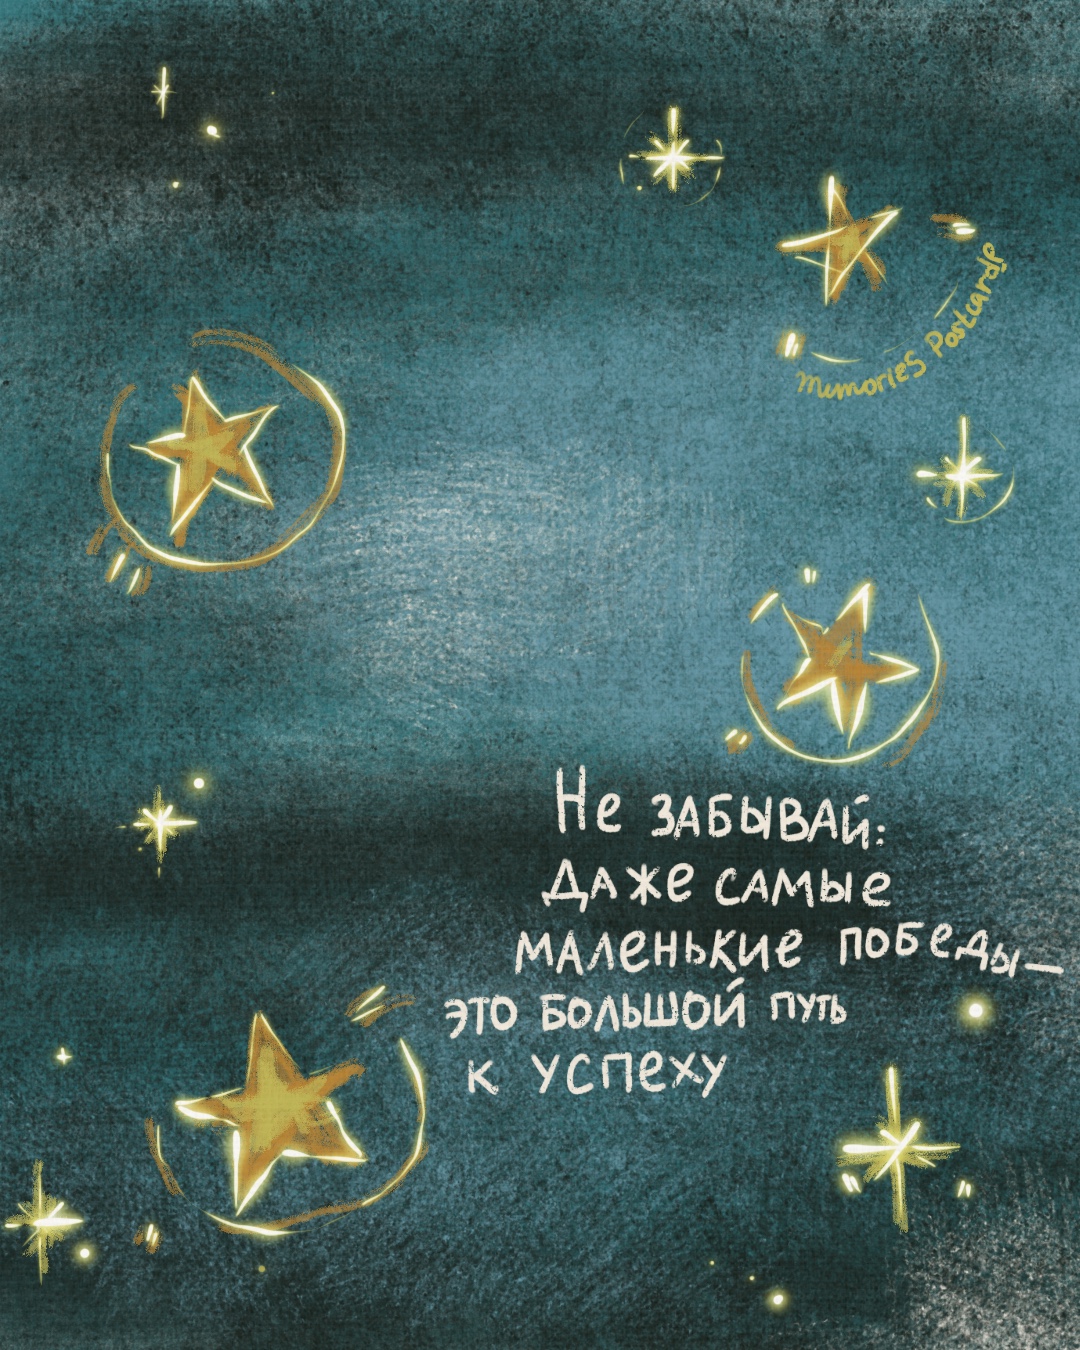 Memories Postcards
Не забывай:
Даже самые
маленькие победы—
это большой путь
к успеху